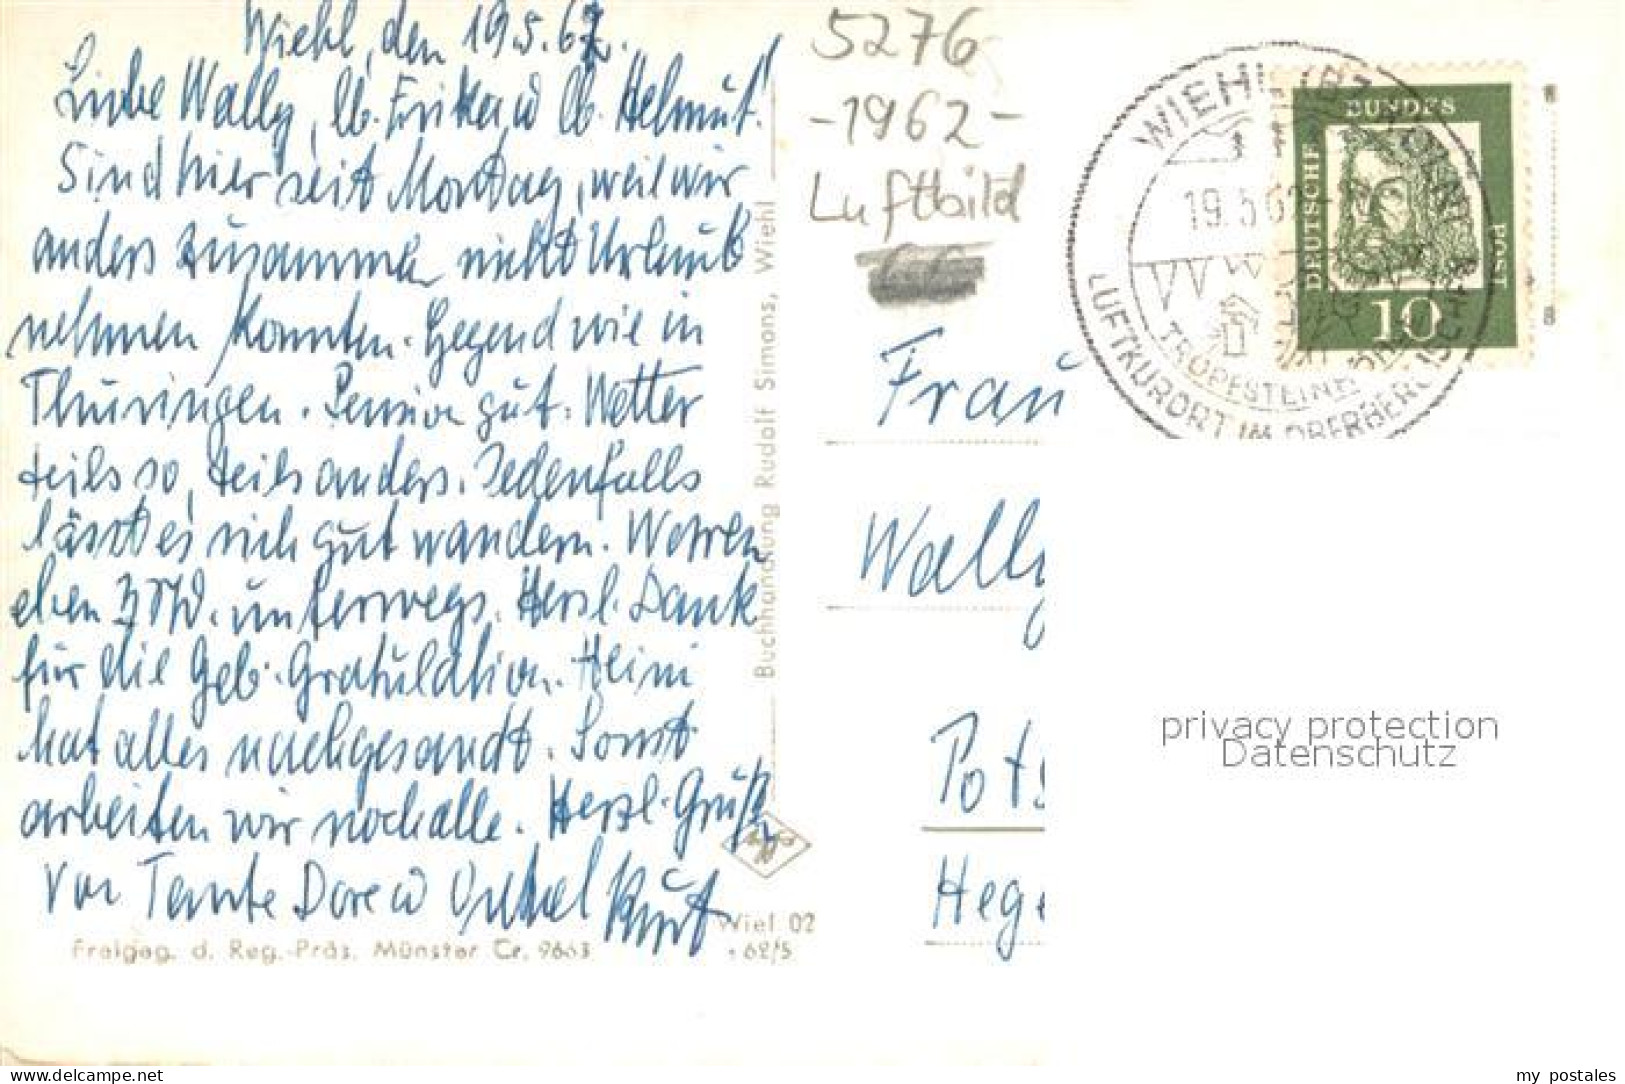 Wiehl, den 19.5.62.
Liebe Wally, lb. Erika u lb. Helmut!
Sind hier seit Montag, weil wir
anders zusammen nicht Urlaub
nehmen konnten. Gegend wie in
Thüringen. Pension gut. Wetter
teils so, teils anders. Jedenfalls
lässt es sich gut wandern. Waren
eben 3 Std. unterwegs. Herzl. Dank
für die Geb. Gratulation. Heini
hat alles nachgesandt. Sonst
arbeiten wir noch alle. Herzl. Grüße
von Tante Dore u Onkel Kurt
Freigeg. d. Reg.-Präs. Münster Cr. 9663
Wiel 02
62/5
Buchhandlung Rudolf Simons, Wiehl
5276
-1962-
Luftbild
WIEHL
19.5.62
TROPFSTEINH
LUFTKURORT IM OBERBERGISCHEN
DEUTSCHE
BUNDES
POST
10
Frau
Wally
Pots
Hege
privacy protection
Datenschutz
www.delcampe.net
my_postales